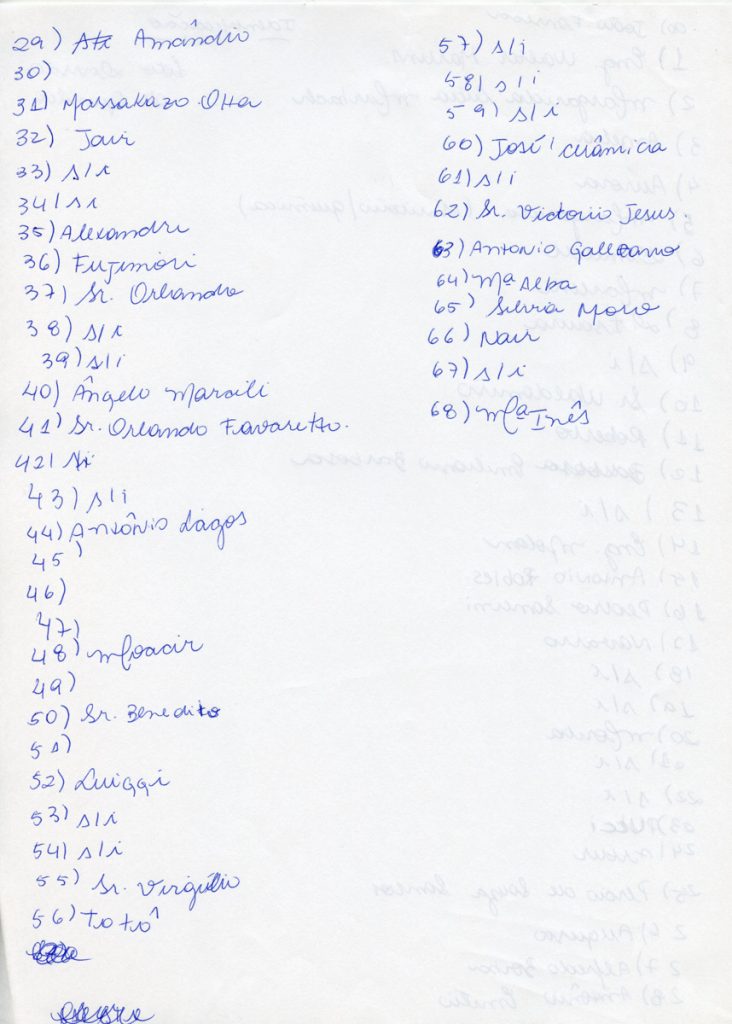 29) Amândio
30)
31) Massakazo OHa
32) Jair
33) s/i
34) si
35) Alexandre
36) Fujimori
37) Sr. Orlando
38) s/i
39) s/i
40) Ângelo Marsili
41) Sr. Orlando Favaretto.
42) si
43) s/i
44) Antônio Lagos
45)
46)
47)
48) Moacir
49)
50) Sr. Benedito
51)
52) Luiggi
53) s/i
54) s/i
55) Sr. Virgílio
56) Totô
57) s/i
58) s/i
59) s/i
60) José / cerâmica
61) s/i
62) Sr. Victorio Jesus.
63) Antonio
64) Mª Alba
65) Silvia Moro
66) Nair
67) s/i
68) Mª Inês